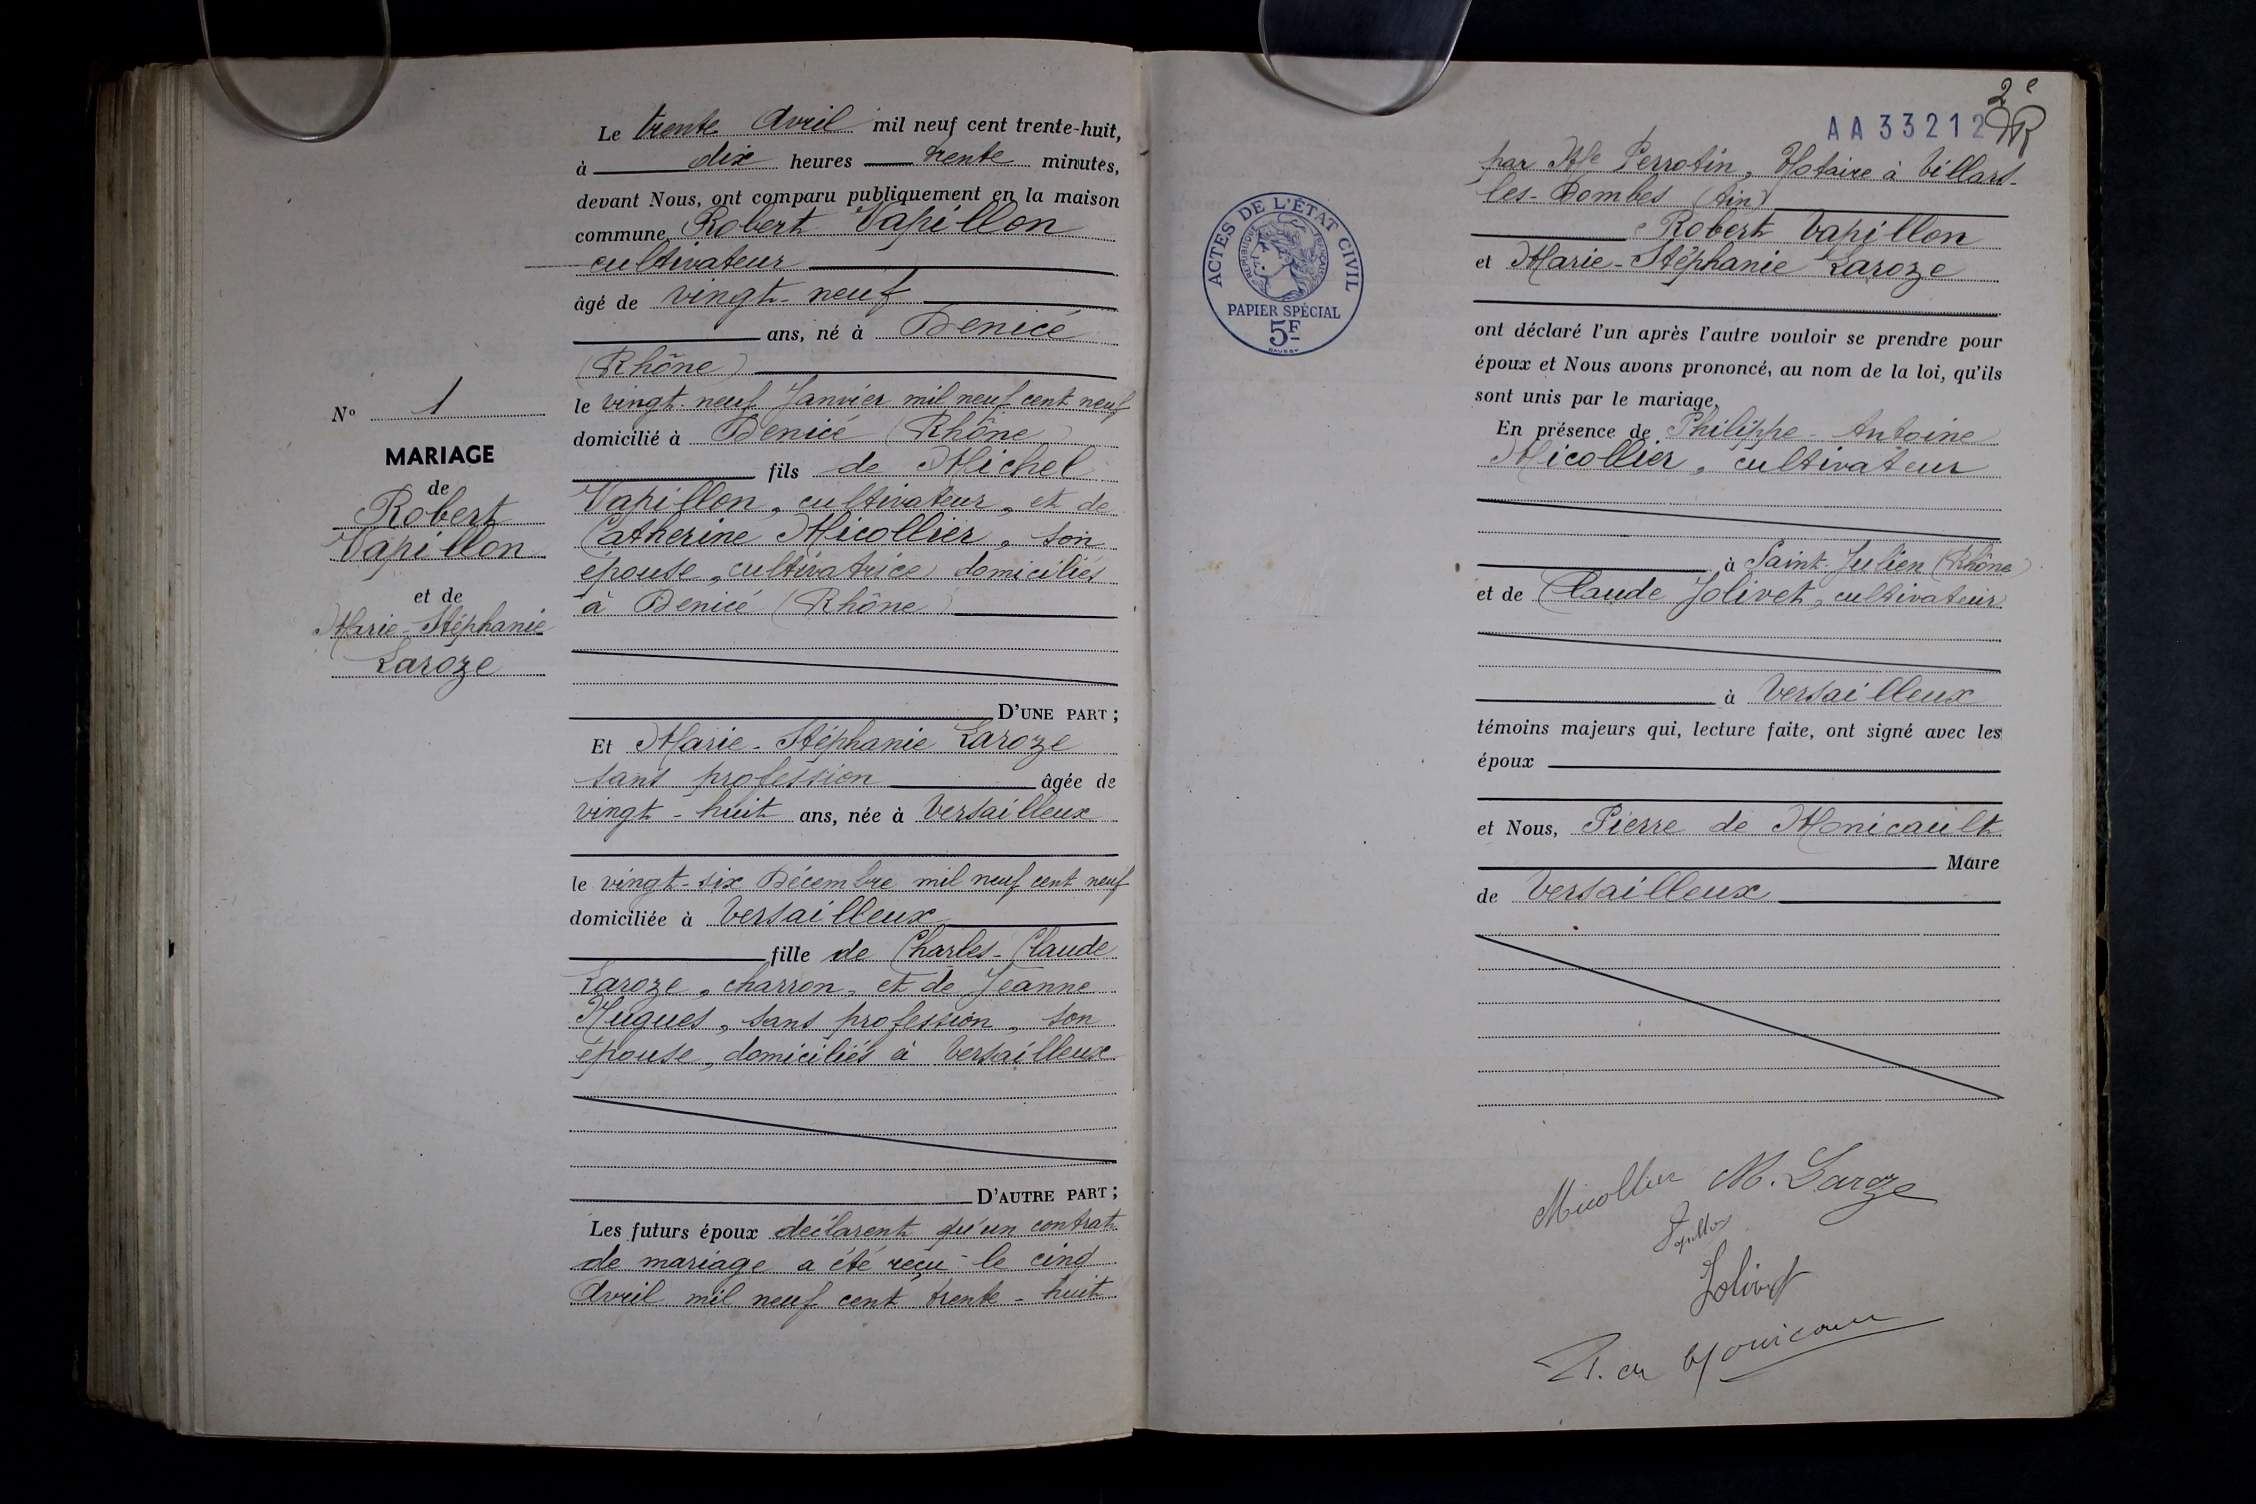 Le trente Avril mil neuf cent trente-huit,
à dix heures trente minutes,
devant Nous, ont comparu publiquement en la maison
commune Robert Vapillon
cultivateur
âgé de vingt-neuf
ans, né à Denicé
(Rhône)
le vingt-neuf Janvier mil neuf cent neuf
domicilié à Denicé (Rhône)
fils de Michel
Vapillon, cultivateur, et de
Catherine Micollier, son
épouse, cultivatrice domiciliés
à Denicé (Rhône)
D'UNE PART ;
Et Marie-Stéphanie Laroze
sans profession âgée de
vingt-huit ans, née à Versailleux
le vingt-six Décembre mil neuf cent neuf
domiciliée à Versailleux
fille de Charles-Claude
Laroze, charron, et de Jeanne
Hugues, sans profession, son
épouse, domiciliés à Versailleux
D'AUTRE PART ;
Les futurs époux déclarent qu'un contrat
de mariage a été reçu le cinq
Avril mil neuf cent trente-huit
N° 1
MARIAGE
de
Robert
Vapillon
et de
Marie-Stéphanie
Laroze
2e
AA 33212
ACTES DE L'ÉTAT CIVIL
RÉPUBLIQUE FRANÇAISE
PAPIER SPÉCIAL
5F
par Me Perrotin, Notaire à Villars-
les-Dombes (Ain)
Robert Vapillon
et Marie-Stéphanie Laroze
ont déclaré l'un après l'autre vouloir se prendre pour
époux et Nous avons prononcé, au nom de la loi, qu'ils
sont unis par le mariage,
En présence de Philippe-Antoine
Micollier, cultivateur
à Saint-Julien (Rhône)
et de Claude Jolivet, cultivateur
à Versailleux
témoins majeurs qui, lecture faite, ont signé avec les
époux
et Nous, Pierre de Monicault
Maire
de Versailleux
Micollier M. Laroze
Jolivet